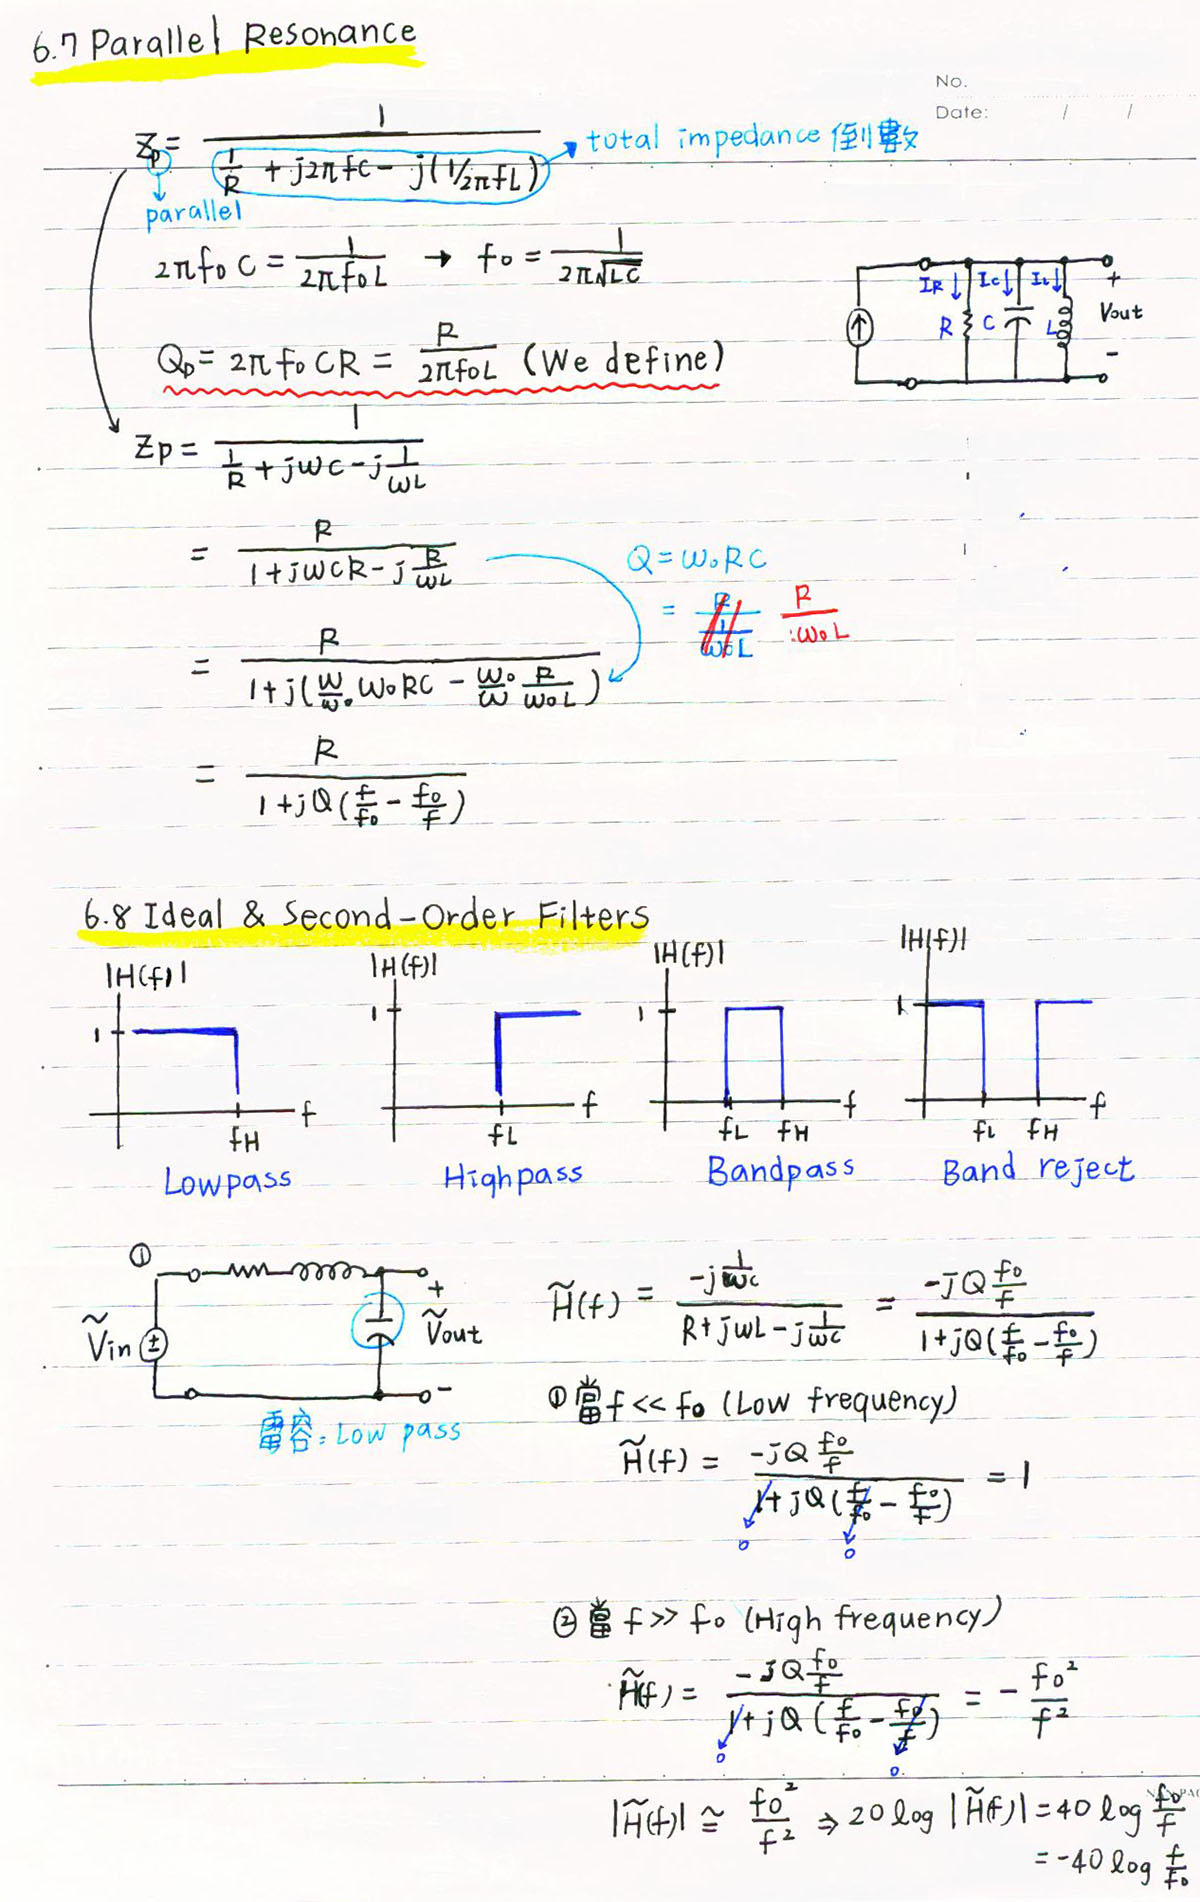 6.7 Parallel Resonance
No.
Date: / /
Zp = 1 / (1/R + j2πfC - j(1/2πfL)) → total impedance 倒數
parallel
2πf₀C = 1/(2πf₀L) → f₀ = 1/(2π√LC)
IR ↓ Ic ↓ IL ↓ +
R C L Vout
-
Qp = 2πf₀CR = R/(2πf₀L) (We define)
Zp = 1 / (1/R + jωC - j 1/ωL)
= R / (1 + jωCR - j R/ωL)
Q = ω₀RC
= R/ω₀L
= R / (1 + j(ω/ω₀ ω₀RC - ω₀/ω R/ω₀L))
= R / (1 + jQ(f/f₀ - f₀/f))
6.8 Ideal & Second-Order Filters
|H(f)| |H(f)| |H(f)| |H(f)|
1 1 1 1
f f f f
fH fL fL fH fL fH
Lowpass Highpass Bandpass Band reject
①
+
Ṽin ± Ṽout
-
電容: Low pass
H̃(f) = (-j 1/ωc) / (R + jωL - j 1/ωc) = (-jQ f₀/f) / (1 + jQ(f/f₀ - f₀/f))
① 當 f << f₀ (Low frequency)
H̃(f) = (-jQ f₀/f) / (1 + jQ(f/f₀ - f₀/f)) = 1
0 0
② 當 f >> f₀ (High frequency)
H̃(f) = (-jQ f₀/f) / (1 + jQ(f/f₀ - f₀/f)) = - f₀²/f²
0 0
|H̃(f)| ≅ f₀²/f² ⇒ 20 log |H̃(f)| = 40 log f₀/f
= -40 log f/f₀